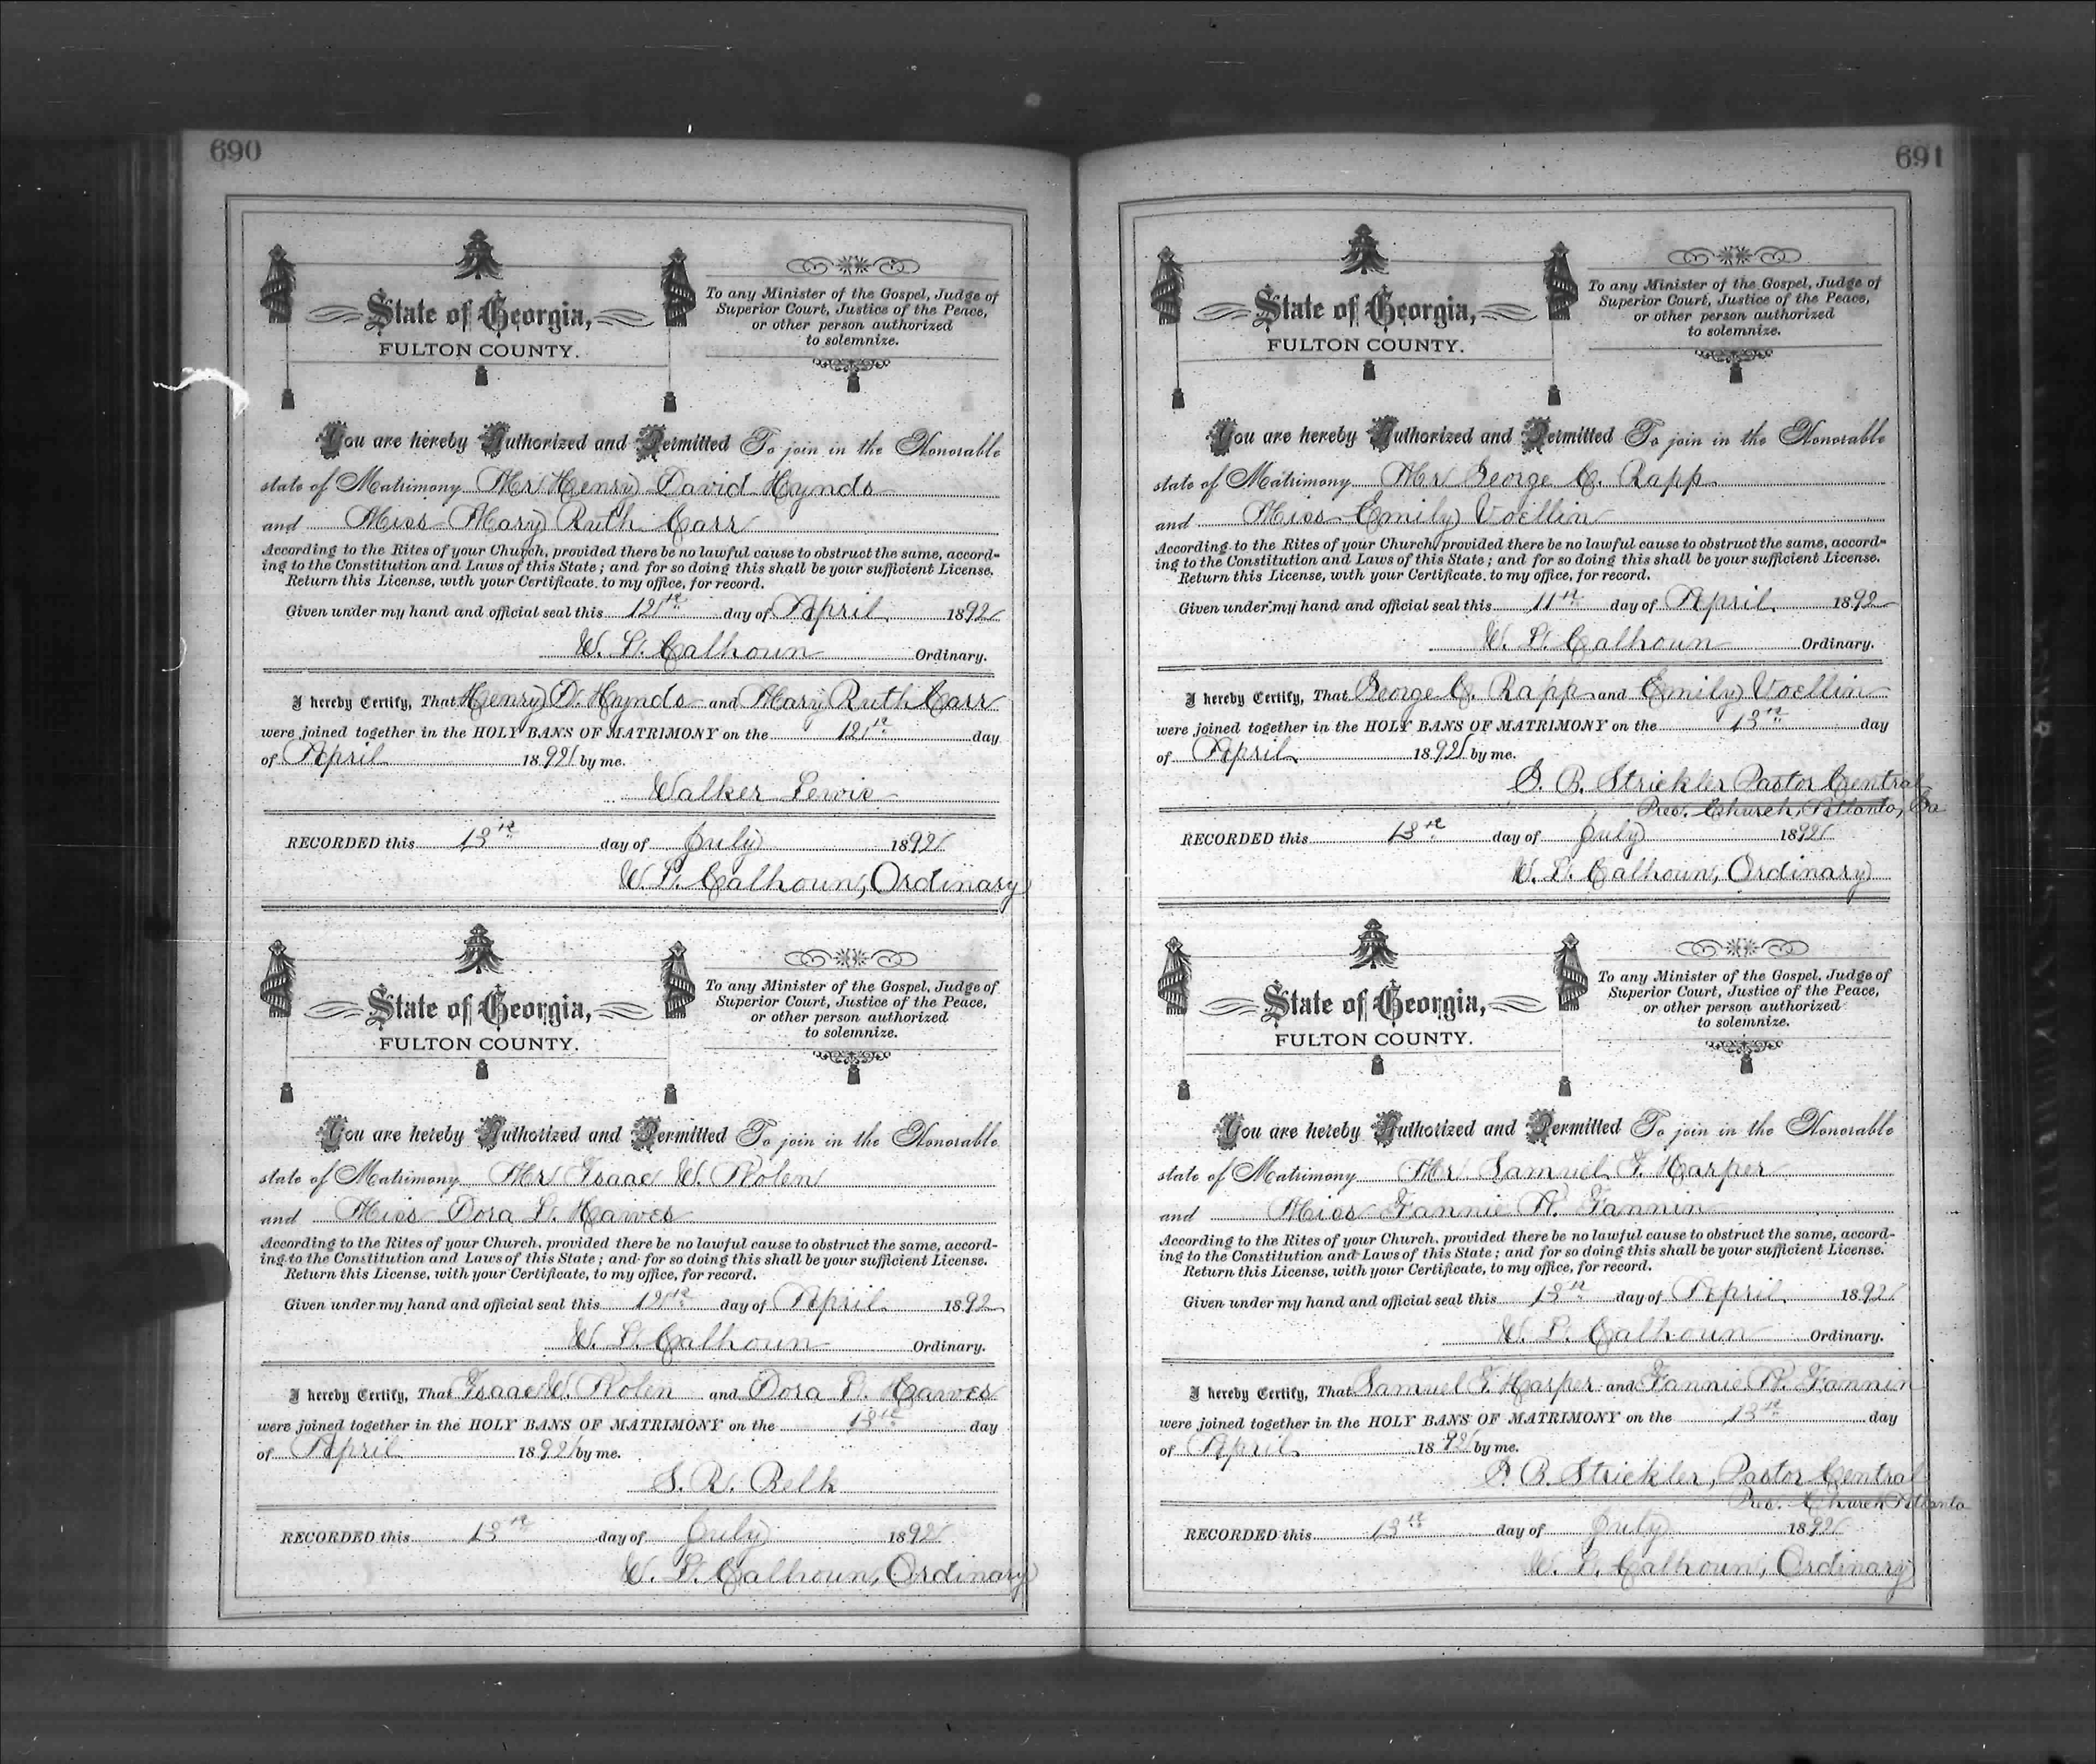 690
State of Georgia,
FULTON COUNTY.
To any Minister of the Gospel, Judge of
Superior Court, Justice of the Peace,
or other person authorized
to solemnize.
You are hereby Authorized and Permitted To join in the Honorable
state of Matrimony Mr Henry David Hynds
and Miss Mary Ruth Carr
According to the Rites of your Church, provided there be no lawful cause to obstruct the same, accord-
ing to the Constitution and Laws of this State; and for so doing this shall be your sufficient License.
Return this License, with your Certificate, to my office, for record.
Given under my hand and official seal this 12th day of April 1892
W. L. Calhoun Ordinary.
I hereby Certify, That Henry D. Hynds and Mary Ruth Carr
were joined together in the HOLY BANS OF MATRIMONY on the 12th day
of April 1892 by me.
Walker Lewis
RECORDED this 13th day of July 1892
W. L. Calhoun, Ordinary
State of Georgia,
FULTON COUNTY.
To any Minister of the Gospel, Judge of
Superior Court, Justice of the Peace,
or other person authorized
to solemnize.
You are hereby Authorized and Permitted To join in the Honorable
state of Matrimony Mr Isaac W. Rolen
and Miss Dora L. Hawes
According to the Rites of your Church, provided there be no lawful cause to obstruct the same, accord-
ing to the Constitution and Laws of this State; and for so doing this shall be your sufficient License.
Return this License, with your Certificate, to my office, for record.
Given under my hand and official seal this 12th day of April 1892
W. L. Calhoun Ordinary.
I hereby Certify, That Isaac W. Rolen and Dora L. Hawes
were joined together in the HOLY BANS OF MATRIMONY on the 13th day
of April 1892 by me.
S. R. Belk
RECORDED this 13th day of July 1892
W. L. Calhoun, Ordinary
691
State of Georgia,
FULTON COUNTY.
To any Minister of the Gospel, Judge of
Superior Court, Justice of the Peace,
or other person authorized
to solemnize.
You are hereby Authorized and Permitted To join in the Honorable
state of Matrimony Mr George C. Rapp
and Miss Emily Voellin
According to the Rites of your Church, provided there be no lawful cause to obstruct the same, accord-
ing to the Constitution and Laws of this State; and for so doing this shall be your sufficient License.
Return this License, with your Certificate, to my office, for record.
Given under my hand and official seal this 11th day of April 1892
W. L. Calhoun Ordinary.
I hereby Certify, That George C. Rapp and Emily Voellin
were joined together in the HOLY BANS OF MATRIMONY on the 13th day
of April 1892 by me.
G. B. Strickler Pastor Central
Pres. Church, Atlanta, Ga
RECORDED this 13th day of July 1892
W. L. Calhoun, Ordinary
State of Georgia,
FULTON COUNTY.
To any Minister of the Gospel, Judge of
Superior Court, Justice of the Peace,
or other person authorized
to solemnize.
You are hereby Authorized and Permitted To join in the Honorable
state of Matrimony Mr Samuel F. Harper
and Miss Fannie R. Fannin
According to the Rites of your Church, provided there be no lawful cause to obstruct the same, accord-
ing to the Constitution and Laws of this State; and for so doing this shall be your sufficient License.
Return this License, with your Certificate, to my office, for record.
Given under my hand and official seal this 13th day of April 1892
W. L. Calhoun Ordinary.
I hereby Certify, That Samuel F. Harper and Fannie R. Fannin
were joined together in the HOLY BANS OF MATRIMONY on the 13th day
of April 1892 by me.
G. B. Strickler, Pastor Central
Pres. Church Atlanta
RECORDED this 13th day of July 1892
W. L. Calhoun, Ordinary